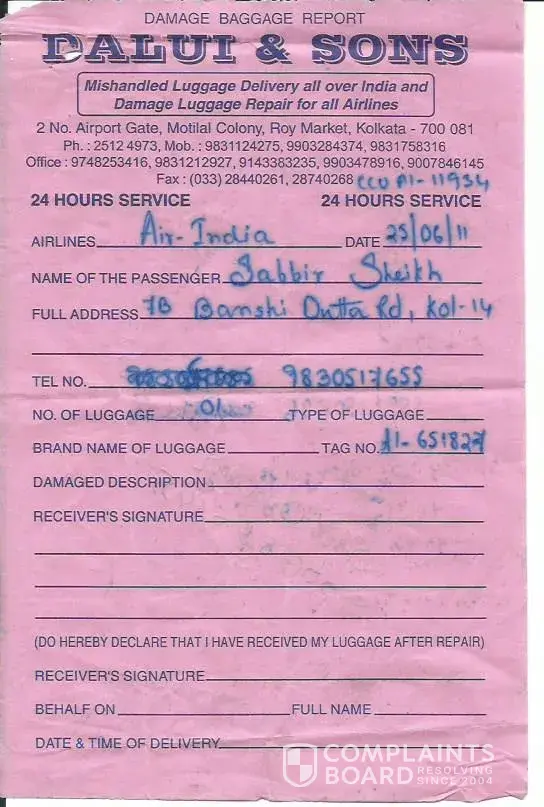 DAMAGE BAGGAGE REPORT
DALUI & SONS
Mishandled Luggage Delivery all over India and
Damage Luggage Repair for all Airlines
2 No. Airport Gate, Motilal Colony, Roy Market, Kolkata - 700 081
Ph. : 2512 4973, Mob. : 9831124275, 9903284374, 9831758316
Office : 9748253416, 9831212927, 9143383235, 9903478916, 9007846145
Fax : (033) 28440261, 28740268 CCU AI-11934
24 HOURS SERVICE 24 HOURS SERVICE
AIRLINES Air-India DATE 25/06/11
NAME OF THE PASSENGER Sabbir Sheikh
FULL ADDRESS 7B Banshi Dutta Rd, Kol-14
TEL NO. 9830517655
NO. OF LUGGAGE 01 TYPE OF LUGGAGE
BRAND NAME OF LUGGAGE TAG NO. AI-651827
DAMAGED DESCRIPTION
RECEIVER'S SIGNATURE
(DO HEREBY DECLARE THAT I HAVE RECEIVED MY LUGGAGE AFTER REPAIR)
RECEIVER'S SIGNATURE
BEHALF ON FULL NAME
DATE & TIME OF DELIVERY
COMPLAINTS
BOARD RESOLVING
SINCE 2004